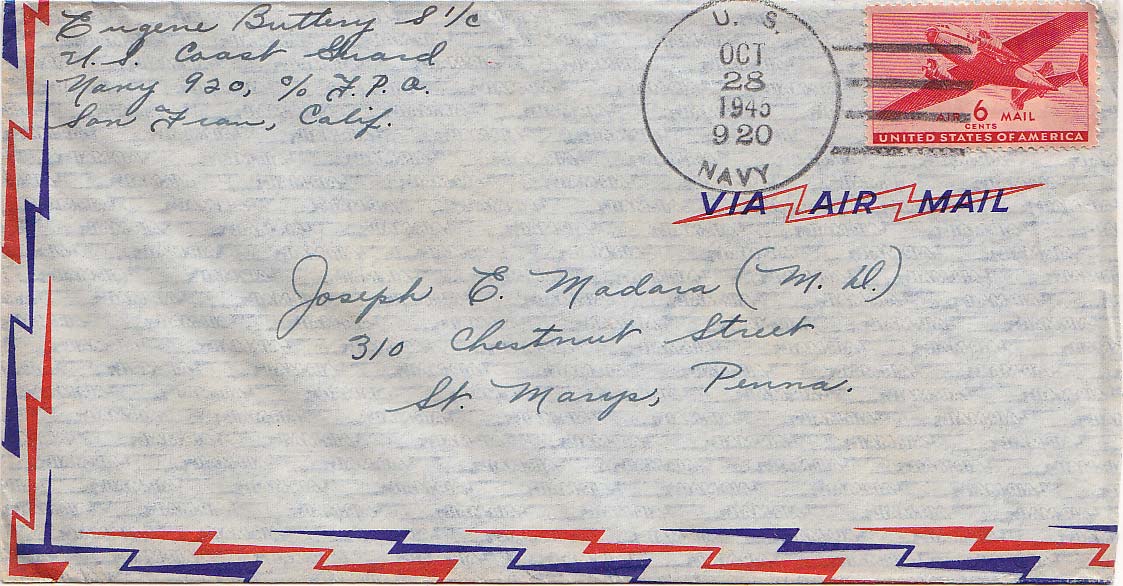 Eugene Buttery S 1/c
U.S. Coast Guard
Navy 920, % F.P.O.
San Fran, Calif.
U. S.
OCT
28
1945
920
NAVY
AIR 6 MAIL
CENTS
UNITED STATES OF AMERICA
VIA AIR MAIL
Joseph E. Madara (M.D.)
310 Chestnut Street
St. Marys, Penna.